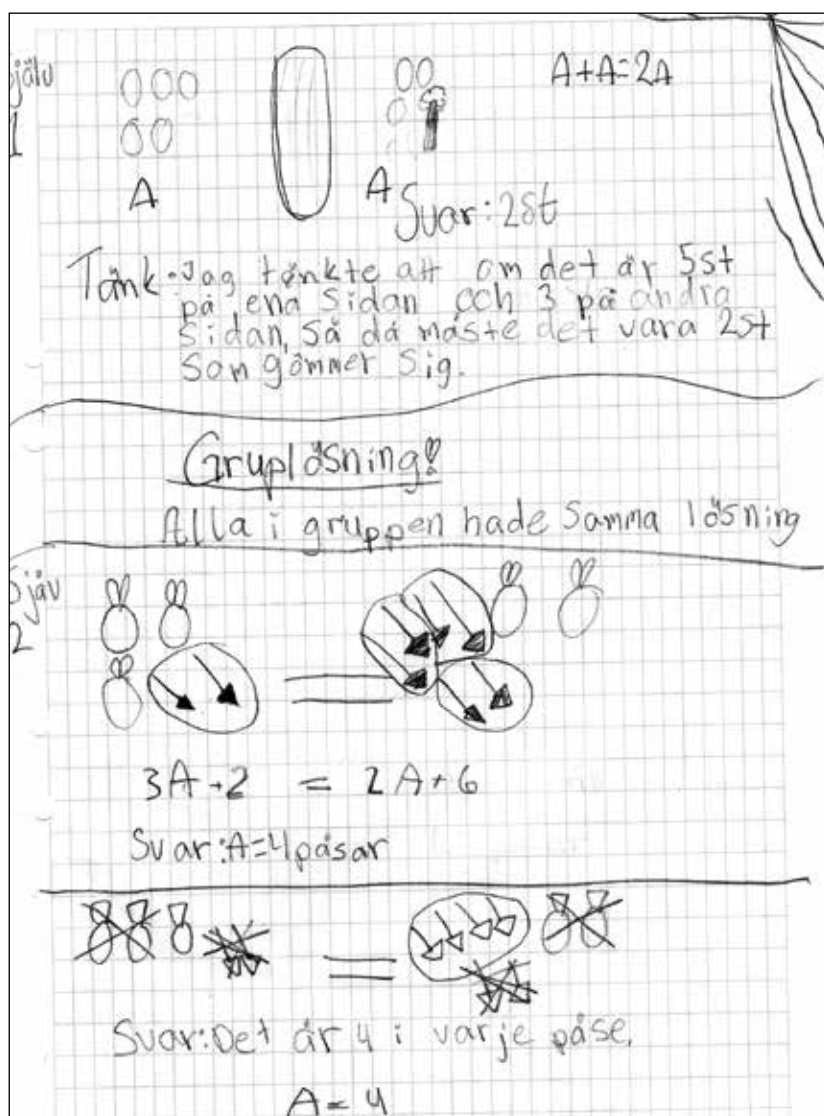 själv
1
A+A=2A
A
A
Svar: 2st
Tänk: Jag tänkte att om det är 5st
på ena sidan och 3 på andra
sidan, så då måste det vara 2st
som gömmer sig.
Gruplösning!
Alla i gruppen hade samma lösning
Själv
2
=
3A+2 = 2A+6
Svar: A=4 påsar
=
Svar: Det är 4 i varje påse.
A=4